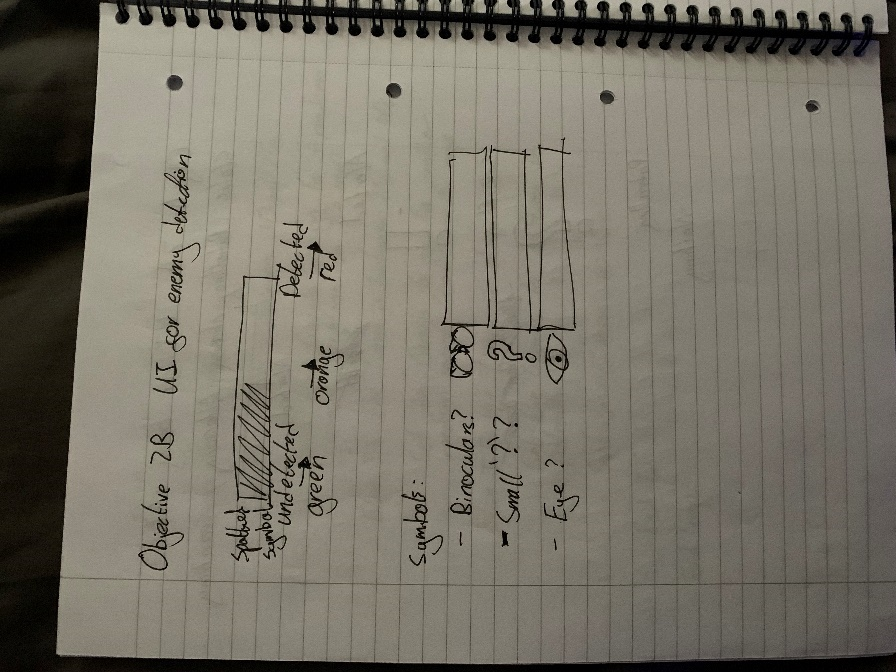 Objective 2B UI for enemy detection
Spotted
Symbol
Undetected
Detected
green
orange
red
Symbols:
- Binoculars?
- Small '?'?
?
- Eye?